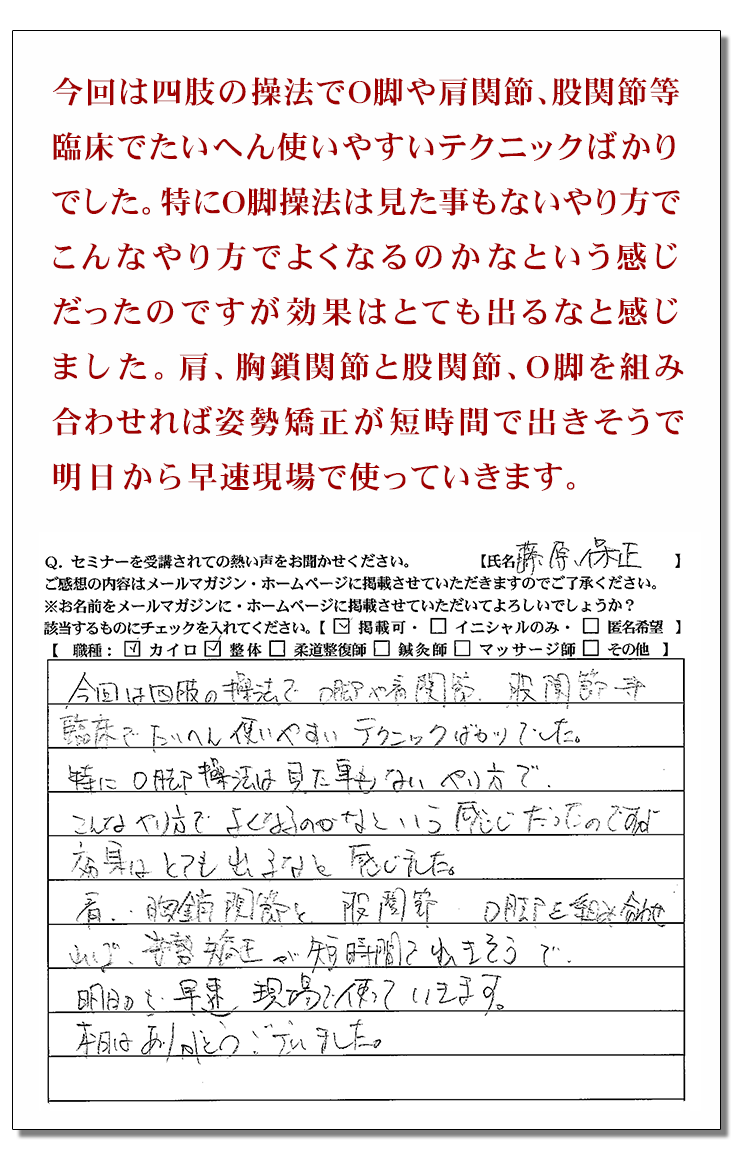 今回は四肢の操法でO脚や肩関節、股関節等
臨床でたいへん使いやすいテクニックばかり
でした。特にO脚操法は見た事もないやり方で
こんなやり方でよくなるのかなという感じ
だったのですが効果はとても出るなと感じ
ました。肩、胸鎖関節と股関節、O脚を組み
合わせれば姿勢矯正が短時間で出きそうで
明日から早速現場で使っていきます。
Q. セミナーを受講されての熱い声をお聞かせください。 【氏名 藤原 保正 】
ご感想の内容はメールマガジン・ホームページに掲載させていただきますのでご了承ください。
※お名前をメールマガジンに・ホームページに掲載させていただいてよろしいでしょうか？
該当するものにチェックを入れてください。【 ☑ 掲載可・ □ イニシャルのみ・ □ 匿名希望 】
【 職種： ☑ カイロ ☑ 整体 □ 柔道整復師 □ 鍼灸師 □ マッサージ師 □ その他 】
今回は四肢の操法で O脚や肩関節、股関節等
臨床でたいへん使いやすいテクニックばかりでした。
特にO脚操法は見た事もないやり方で、
こんなやり方でよくなるのかなという感じだったのですが
効果はとても出るなと感じました。
肩、胸鎖関節と股関節 O脚を組み合わせ
れば、姿勢矯正が短時間で出きそうで、
明日から早速、現場で使っていきます。
本日はありがとうございました。